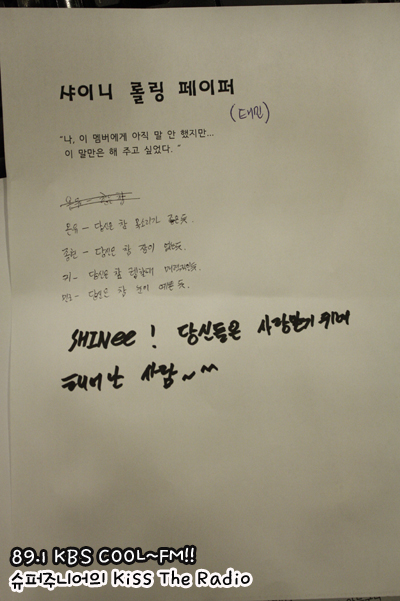 샤이니 롤링 페이퍼
(태민)
"나, 이 멤버에게 아직 말 안 했지만...
이 말만은 해 주고 싶었다. "
온유 - 당신은 참 목소리가 좋은듯.
종현 - 당신은 참
키 - 당신은 참
민호 - 당신은 참 눈이 예쁜듯.
SHINee ! 당신들은 사랑받기 위해
태어난 사람~^^
89.1 KBS COOL~FM!!
슈퍼주니어의 Kiss The Radio